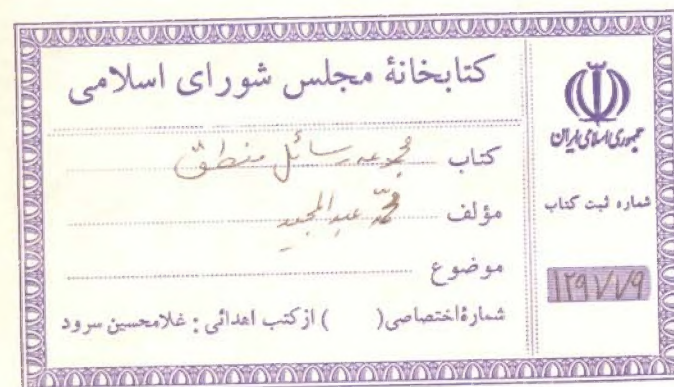 کتابخانهٔ مجلس شورای اسلامی
کتاب مجموعه رسائل منطق
مؤلف محمد عبدالمجید
موضوع
شمارهٔ اختصاصی( ) از کتب اهدائی : غلامحسین سرود
جمهوری اسلامی ایران
شماره ثبت کتاب
۱۲۹۷۷۹